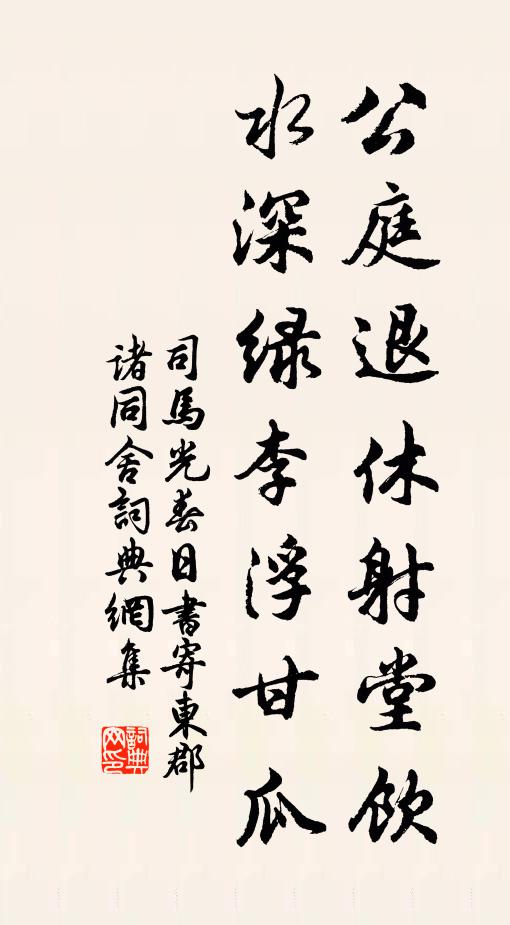 公庭退休射堂飲
水深緑李浮甘瓜
司馬光春日書寄東郡
諸同舍詞典網集
詞典網印